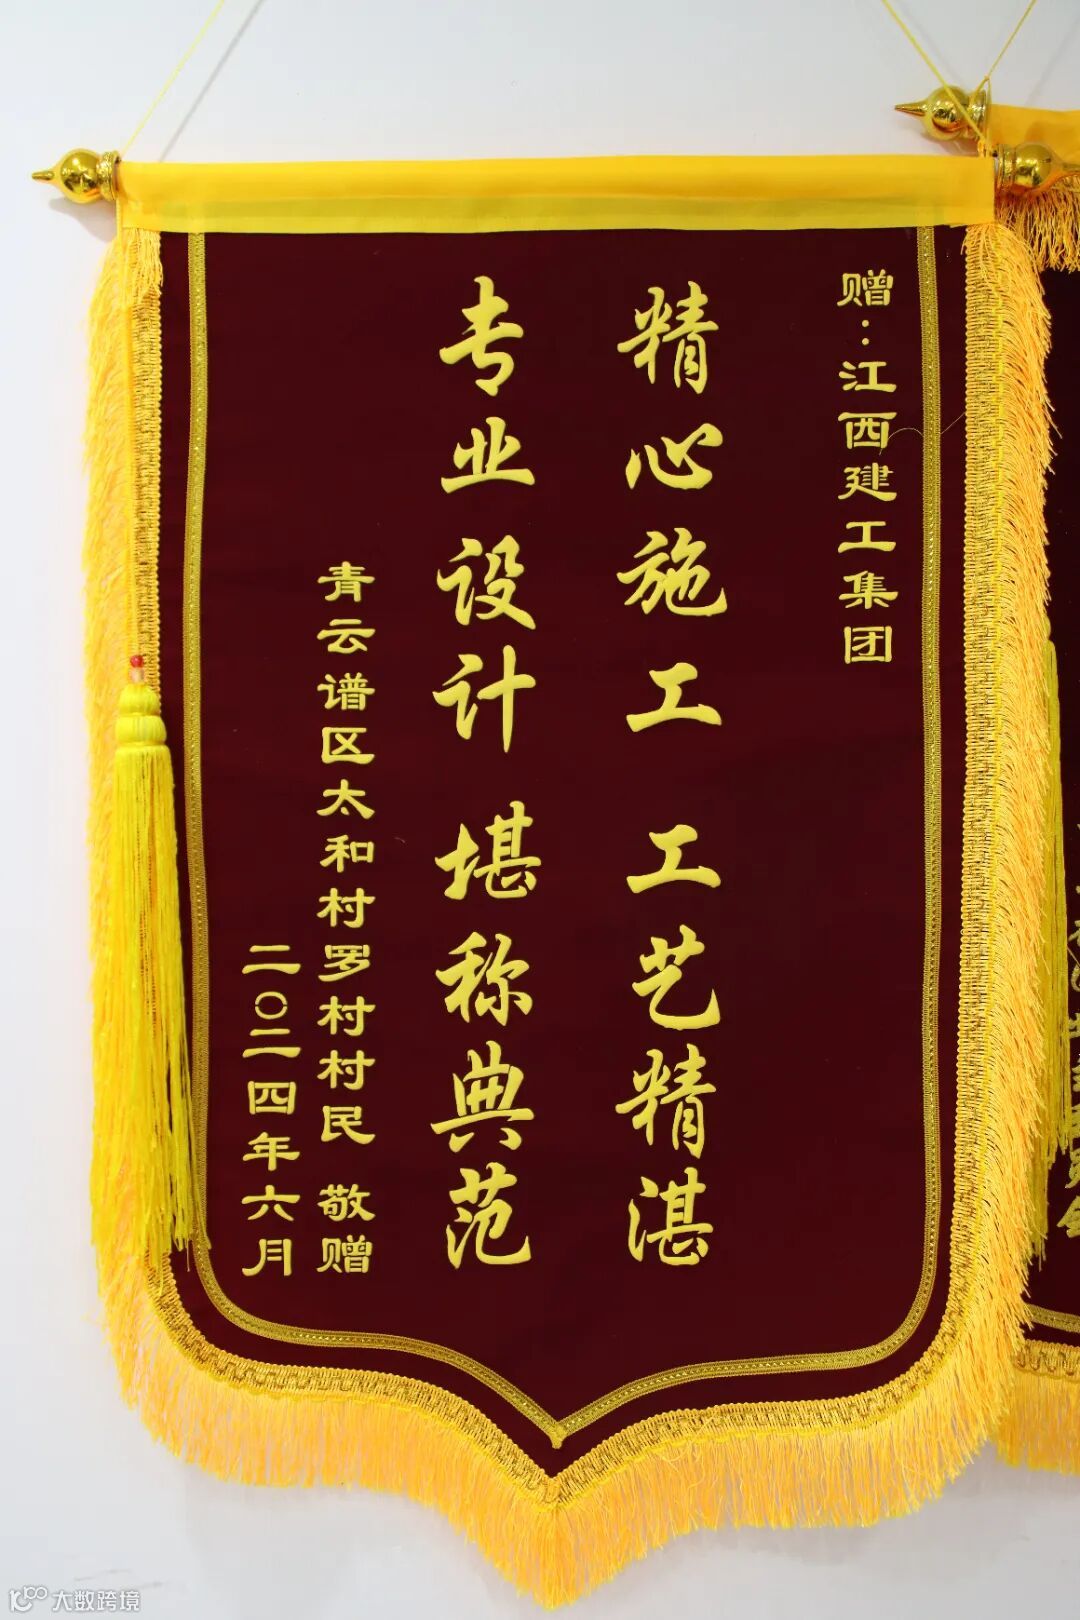 赠：江西建工集团
精心施工 工艺精湛
专业设计 堪称典范
青云谱区太和村罗村村民 敬赠
二〇二四年六月
大数跨境